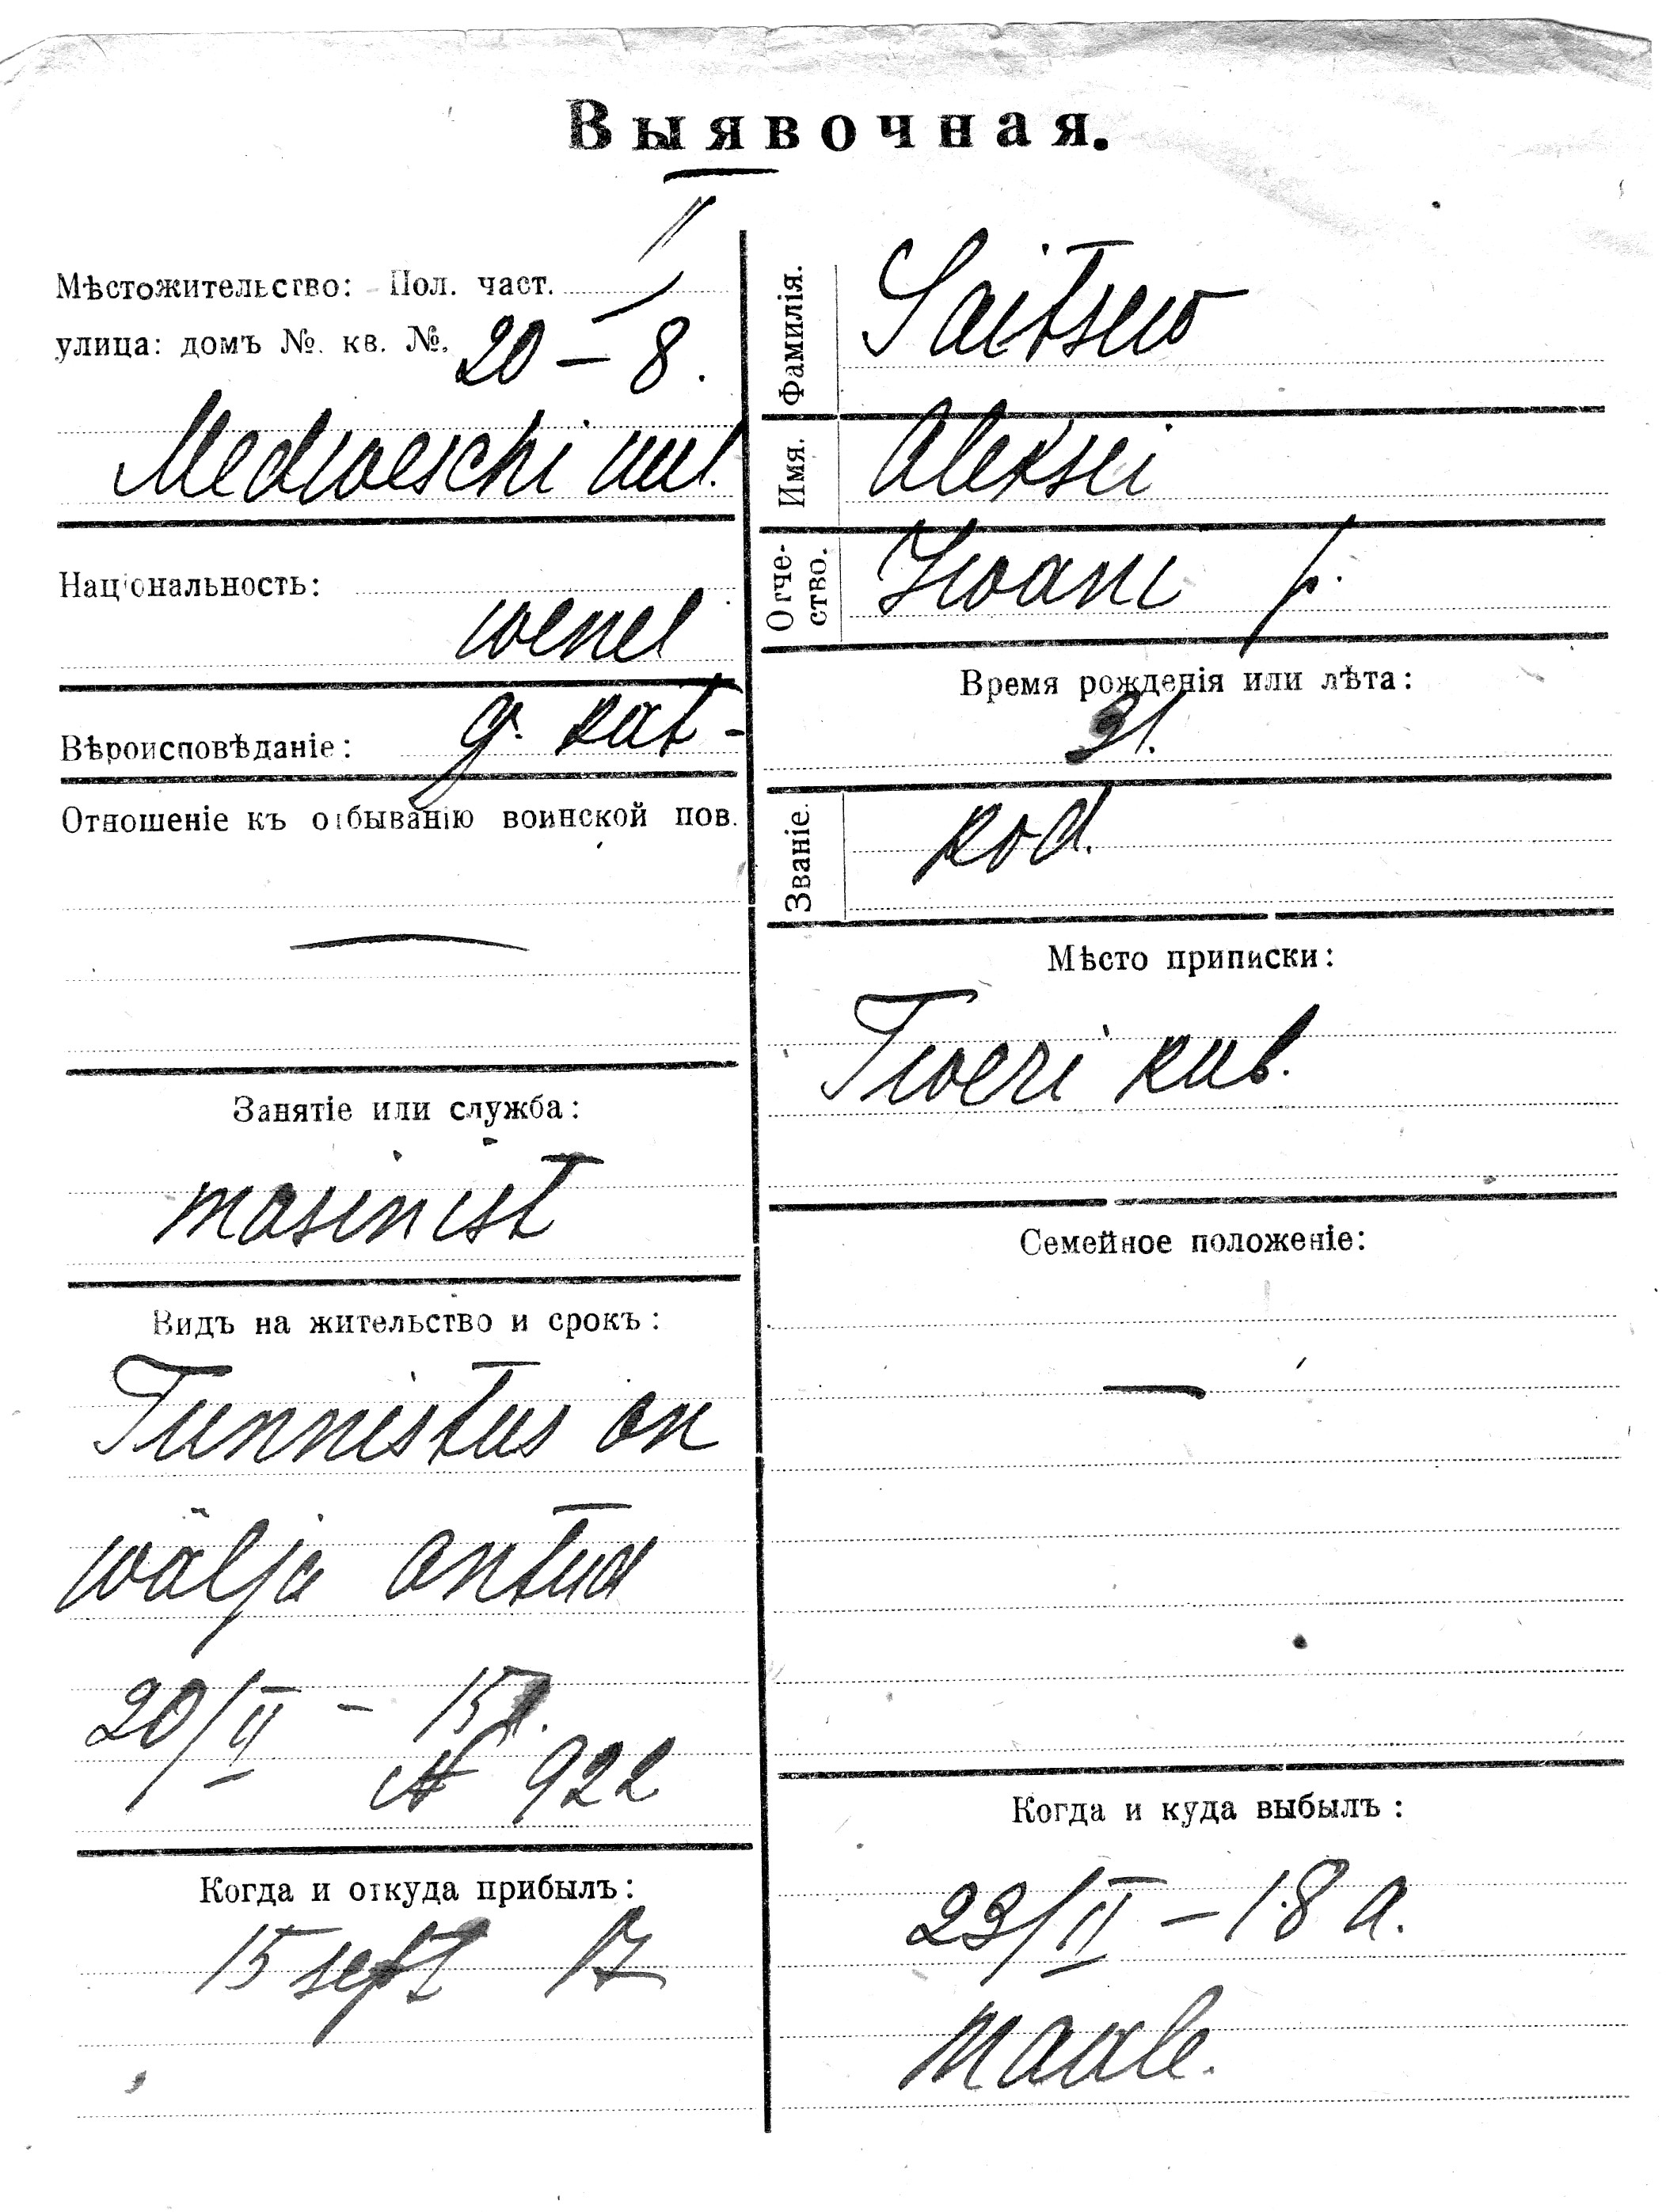 Выявочная.
Мѣстожительство: Пол. част. I
улица: домъ №. кв. №. 20 – 8.
Medweschi uul.
Національность:
wenel
Вѣроисповѣданіе: g. kat-
Отношеніе къ отбыванію воинской пов.
Занятіе или служба:
masinist
Видъ на жительство и срокъ:
Tunnistus on
wälja antud
20/II – 15 a.
№ 922
Когда и откуда прибылъ:
15 sept 17
Фамилія. Saitsew
Имя. Aleksei
Отче-
ство. Iwani p.
Время рожденія или лѣта:
31.
Званіе. kod.
Мѣсто приписки:
Tweri kub.
Семейное положеніе:
Когда и куда выбылъ:
23/II – 18 a.
Maale.